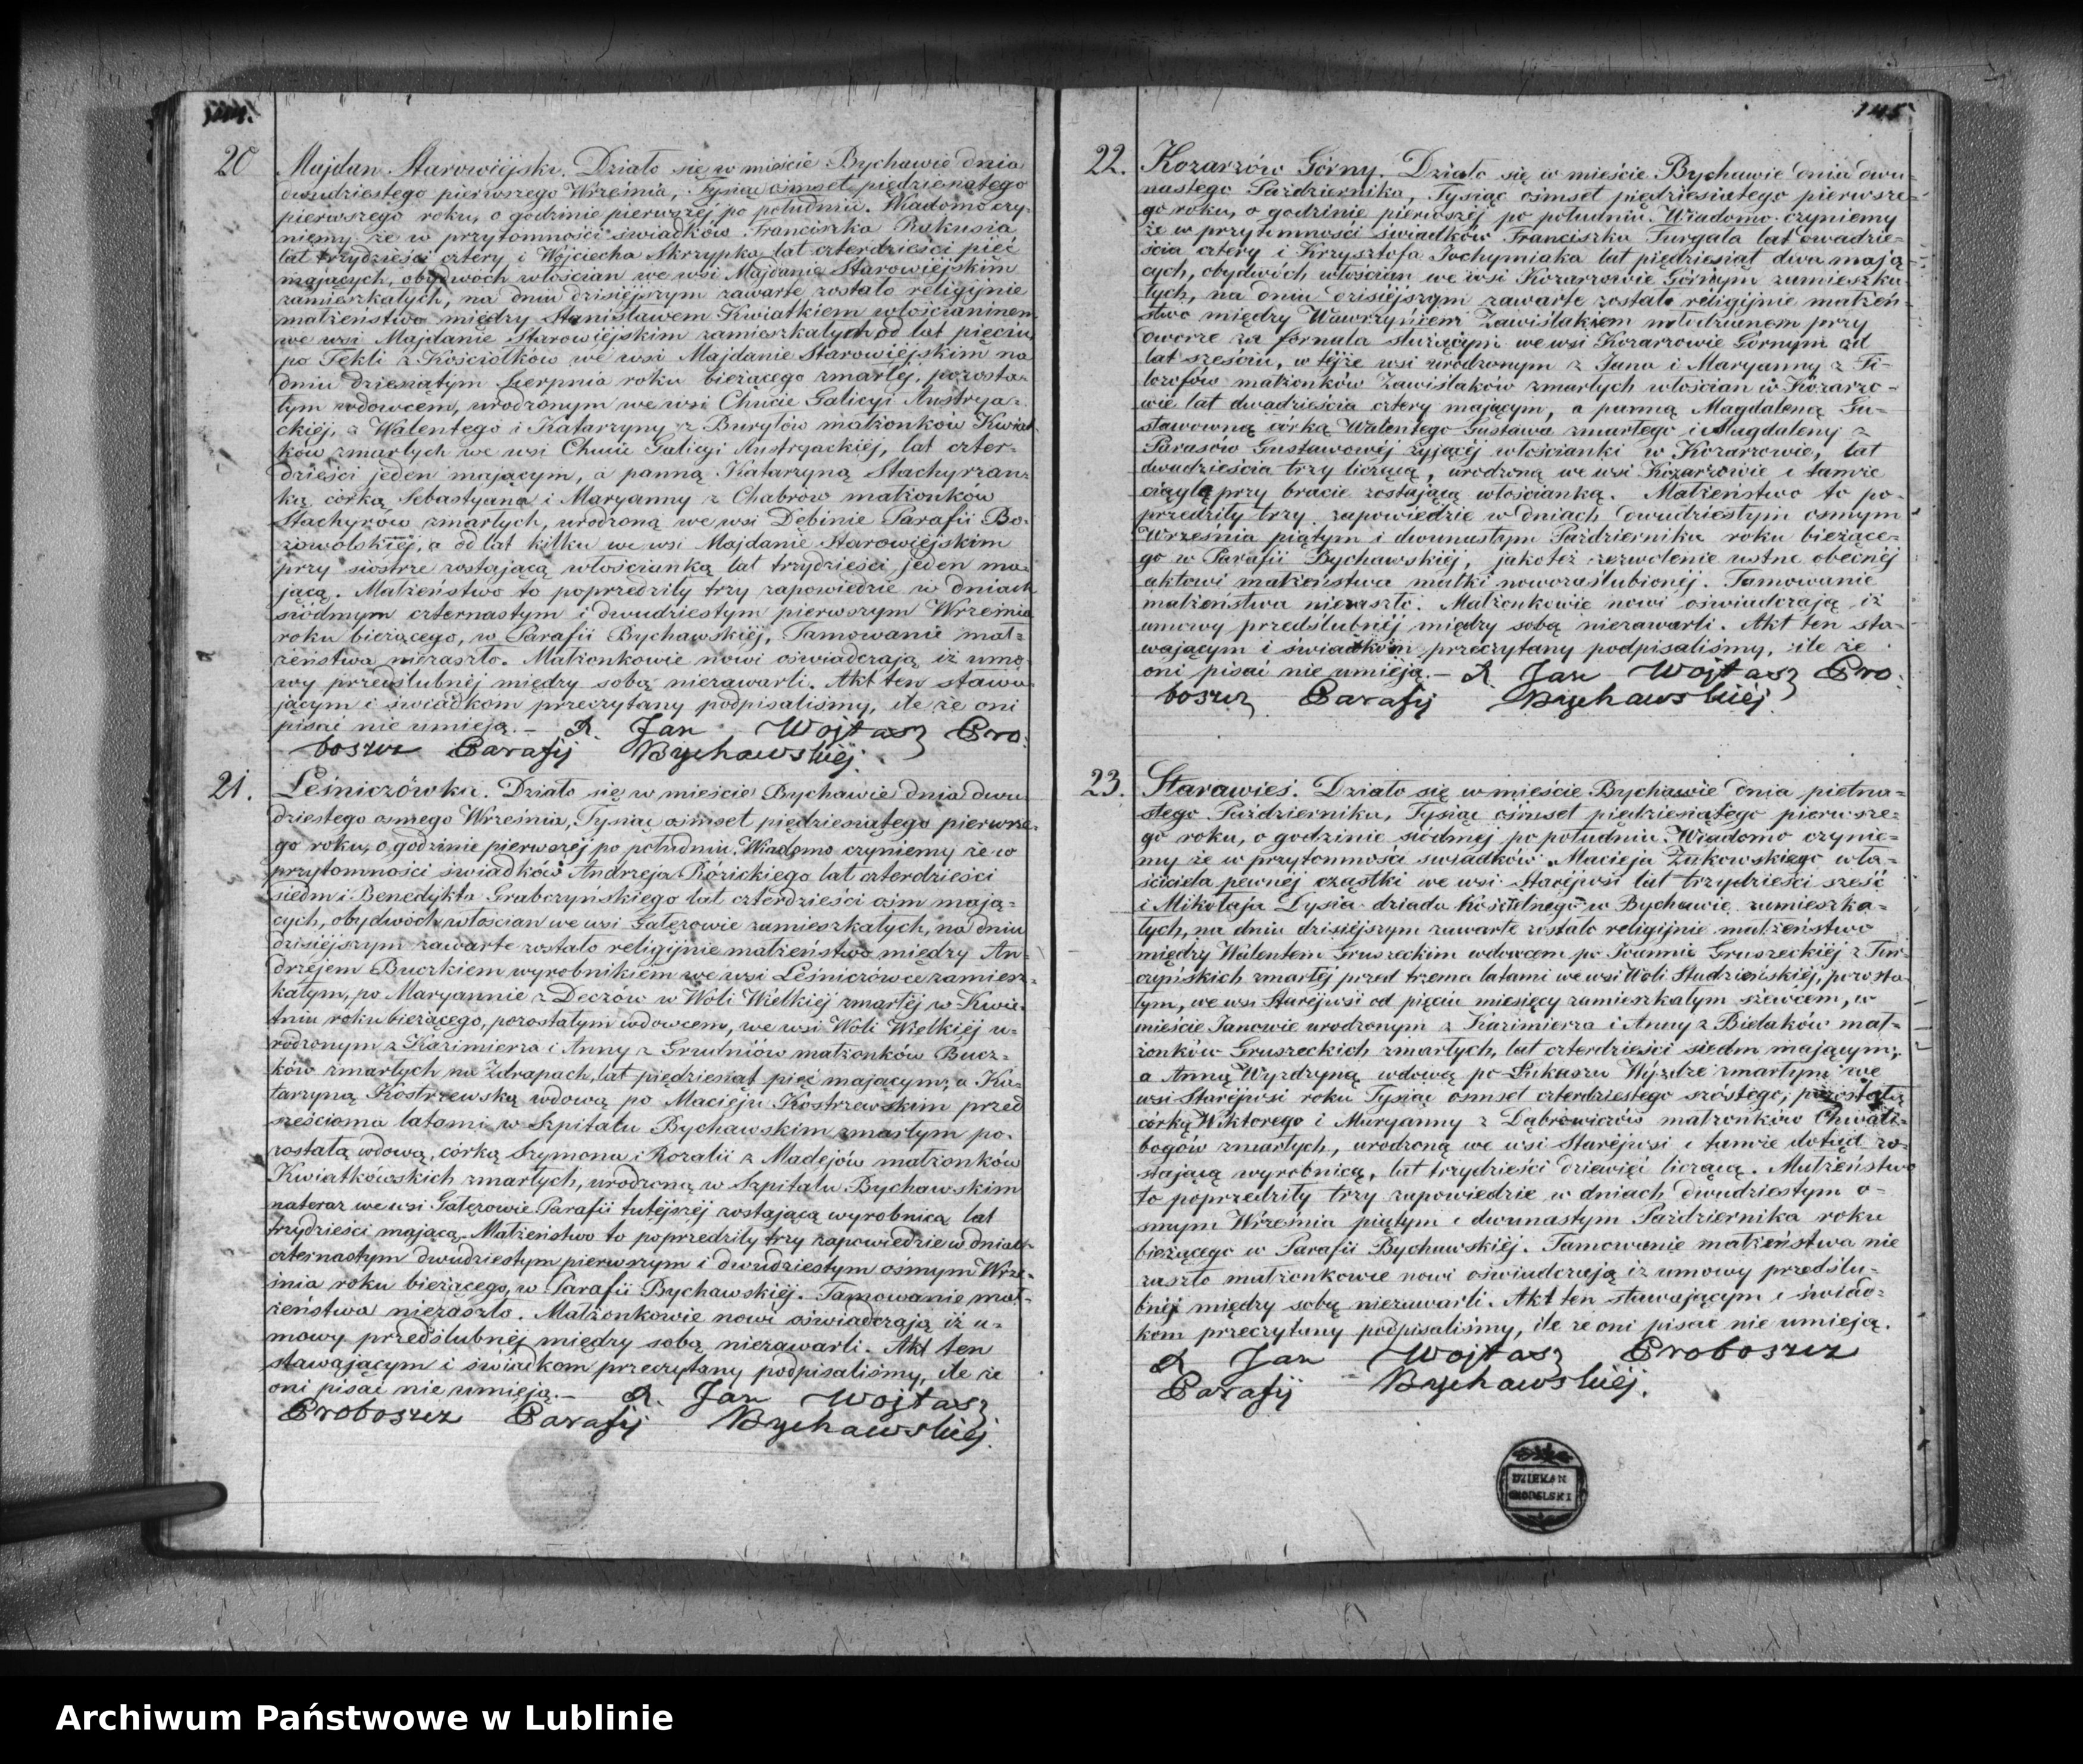 144.
20 Majdan Starowiejski. Działo się w mieście Bychawie dnia
dwudziestego pierwszego Września, Tysiąc ośmset pięдziesiątego
pierwszego roku, o godzinie pierwszej po południu. Wiadomo czy-
niemy że w przytomności świadków Franciszka Rakusia
lat trzydzieści cztery i Wojciecha Skrzypka lat czterdzieści pięć
mających, obydwóch włościan we wsi Majdanie Starowiejskim
zamieszkałych, na dniu dzisiejszym zawarte zostało religijnie
małżeństwo między Stanisławem Kwiatkiem włościaninem
we wsi Majdanie Starowiejskim zamieszkałym od lat pięciu
po Tekli z Kościołków we wsi Majdanie Starowiejskim na
dniu dziesiątym Sierpnia roku bieżącego zmarłej, pozosta-
łym wdowcem, urodzonym we wsi Chucie Galicyi Austrya-
ckiej, z Walentego i Katarzyny z Buryłów małżonków Kwiat-
ków zmarłych we wsi Chucie Galicyi Austryackiej, lat czter-
dzieści jeden mającym, a panną Katarzyną Stachyrzan-
ką córką Sebastyana i Maryanny z Chabrów małżonków
Stachyrów zmarłych, urodzoną we wsi Dębinie Parafii Bo-
żowolskiej, a od lat kilku we wsi Majdanie Starowiejskim
przy siostrze zostającą włościanką lat trzydzieści jeden ma-
jącą. Małżeństwo to poprzedziły trzy zapowiedzie w dniach
siódmym czternastym i dwudziestym pierwszym Września
roku bieżącego, w Parafii Bychawskiej, Tamowanie mał-
żeństwa niezaszło. Małżonkowie nowi oświadczają iż umo-
wy przedślubnej między sobą niezawarli. Akt ten stawa-
jącym i świadkom przeczytany podpisaliśmy, ile że oni
pisać nie umieją. – X. Jan Wojtasz Pro-
boszcz Parafij Bychawskiéj.
21. Leśniczówka. Działo się w mieście Bychawie dnia dwu-
dziestego osmego Września, Tysiąc ośmset pięдziesiątego pierwsze-
go roku, o godzinie pierwszej po południu. Wiadomo czyniemy że w
przytomności świadków Andrzeja Różickiego lat czterdzieści
siedm i Benedykta Grabczyńskiego lat czterdzieści ośm mają-
cych, obydwóch włościan we wsi Gałęzowie zamieszkałych, na dniu
dzisiejszym zawarte zostało religijnie małżeństwo między An-
drzejem Buczkiem wyrobnikiem we wsi Leśniczówce zamiesz-
kałym, po Maryannie z Deczów w Woli Wielkiej zmarłej w Kwie-
tniu roku bieżącego, pozostałym wdowcem, we wsi Woli Wielkiej u-
rodzonym z Kazimierza i Anny z Grudniów małżonków Bucz-
ków zmarłych na Zdrapach, lat pięćdziesiąt pięć mającym; a Ka-
tarzyną Kostrzewską wdową po Macieju Kostrzewskim przed
sześcioma latami w Szpitalu Bychawskim zmarłym po-
zostałą wdową, córką Szymona i Rozalii z Madejów małżonków
Kwiatkowskich zmarłych, urodzoną w Szpitalu Bychawskim
nateraz we wsi Gałęzowie Parafii tutejszej zostającą wyrobnicą lat
trzydzieści mającą. Małżeństwo to poprzedziły trzy zapowiedzie w dniach
czternastym dwudziestym pierwszym i dwudziestym osmym Wrze-
śnia roku bieżącego, w Parafii Bychawskiej. Tamowanie mał-
żeństwa niezaszło. Małżonkowie nowi oświadczają iż u-
mowy przedślubnej między sobą niezawarli. Akt ten
stawającym i świadkom przeczytany podpisaliśmy, ile że
oni pisać nie umieją. – X. Jan Wojtasz
Proboszcz Parafij Bychawskiéj.
145
22. Kozarzów Górny. Działo się w mieście Bychawie dnia dwu-
nastego Października, Tysiąc ośmset pięдziesiątego pierwsze-
go roku, o godzinie pierwszej po południu. Wiadomo czyniemy
że w przytomności świadków Franciszka Furgala lat dwadzie-
ścia cztery i Krzysztofa Jochymiaka lat pięćdziesiąt dwa mają-
cych, obydwóch włościan we wsi Kozarzowie Górnym zamieszka-
łych, na dniu dzisiejszym zawarte zostało religijnie małżeń-
stwo między Wawrzyńcem Zawiślakiem młodzianem przy
dworze za fornala służącym we wsi Kozarzowie Górnym od
lat sześciu, w tejże wsi urodzonym z Jana i Maryanny z Fi-
lozofów małżonków Zawiślaków zmarłych włościan w Kozarzo-
wie lat dwadzieścia cztery mającym, a panną Magdaleną Gu-
stawowną córką Walentego Gustawa zmarłego i Magdaleny z
Parasów Gustawowéj żyjącéj włościanki w Kozarzowie, lat
dwadzieścia trzy liczącą, urodzoną we wsi Kozarzowie i tamże
ciągle przy bracie zostającą włościanką. Małżeństwo to po-
przedziły trzy zapowiedzie w dniach dwudziestym osmym
Września piątym i dwunastym Października roku bieżące-
go w Parafii Bychawskiéj, jakoteż zezwolenie ustne obecnéj
aktowi małżeństwa matki nowozaślubionéj. Tamowanie
małżeństwa niezaszło. Małżonkowie nowi oświadczają iż
umowy przedślubnéj między sobą niezawarli. Akt ten sta-
wającym i świadkom przeczytany podpisaliśmy, ile że
oni pisać nie umieją. – X. Jan Wojtasz Pro-
boszcz Parafij Bychawskiéj.
23. Starawieś. Działo się w mieście Bychawie dnia piętna-
stego Października, Tysiąc ośmset pięдziesiątego pierwsze-
go roku, o godzinie siódmej po południu. Wiadomo czynie-
my że w przytomności świadków Macieja Żukowskiego wła-
ściciela pewnéj cząstki we wsi Staréjwsi lat trzydzieści sześć
i Mikołaja Dysia dziada kościelnego w Bychawie zamieszka-
łych, na dniu dzisiejszym zawarte zostało religijnie małżeństwo
między Walentem Gruszeckim wdowcem po Joannie Gruszeckiéj z Tur-
czyńskich zmarłéj przed trzema latami we wsi Woli Studzieńskiéj, pozosta-
łym, we wsi Staréjwsi od pięciu miesięcy zamieszkałym szewcem, w
mieście Janowie urodzonym z Kazimierza i Anny z Bielaków mał-
żonków Gruszeckich zmarłych, lat czterdzieści siedm mającym;
a Anną Wyzdrzyną wdową po Łukaszu Wyzdrze zmarłym we
wsi Staréjwsi roku Tysiąc ośmset czterdziestego szóstego, pozostałą
córką Wiktorego i Maryanny z Dąbrowiczów małżonków Chwali-
bogów zmarłych, urodzoną we wsi Staréjwsi i tamże dotąd zo-
stającą wyrobnicą, lat trzydzieści dziewięć liczącą. Małżeństwo
to poprzedziły trzy zapowiedzie w dniach dwudziestym o-
smym Września piątym i dwunastym Października roku
bieżącego w Parafii Bychawskiéj. Tamowanie małżeństwa nie
zaszło małżonkowie nowi oświadczają iż umowy przedślu-
bnéj między sobą niezawarli. Akt ten stawającym i świad-
kom przeczytany podpisaliśmy, ile że oni pisać nie umieją.
X. Jan Wojtasz Proboszcz
Parafij Bychawskiéj.
DZIEKAN
CHODELSKI
Archiwum Państwowe w Lublinie